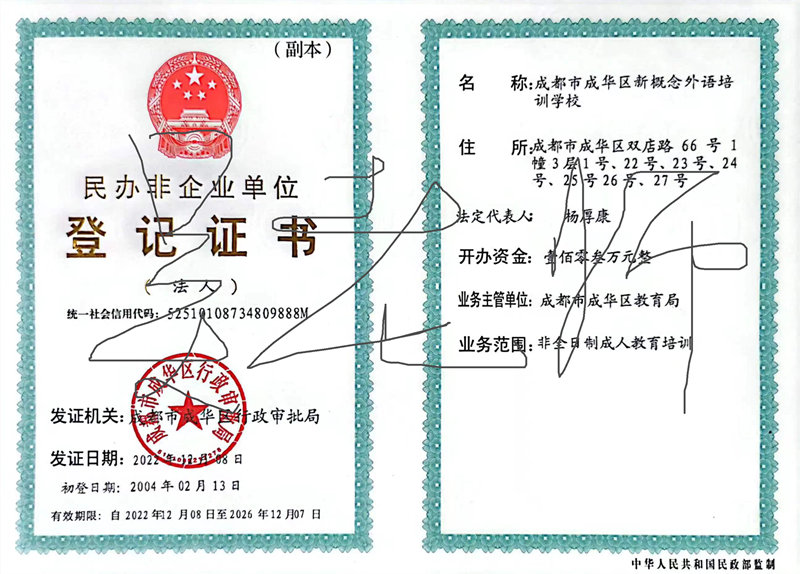 (副本)
民办非企业单位
登记证书
(法人)
统一社会信用代码: 52510108734809888M
发证机关: 成都市成华区行政审批局
成都市成华区行政审批局
发证日期: 2022年12月08日
初登日期: 2004年02月13日
有效期限: 自2022年12月08日至2026年12月07日
名 称: 成都市成华区新概念外语培
训学校
住 所: 成都市成华区双店路 66 号 1
幢3层1号、22号、23号、24
号、25号26号、27号
法定代表人: 杨厚康
开办资金: 壹佰零叁万元整
业务主管单位: 成都市成华区教育局
业务范围: 非全日制成人教育培训
中华人民共和国民政部监制